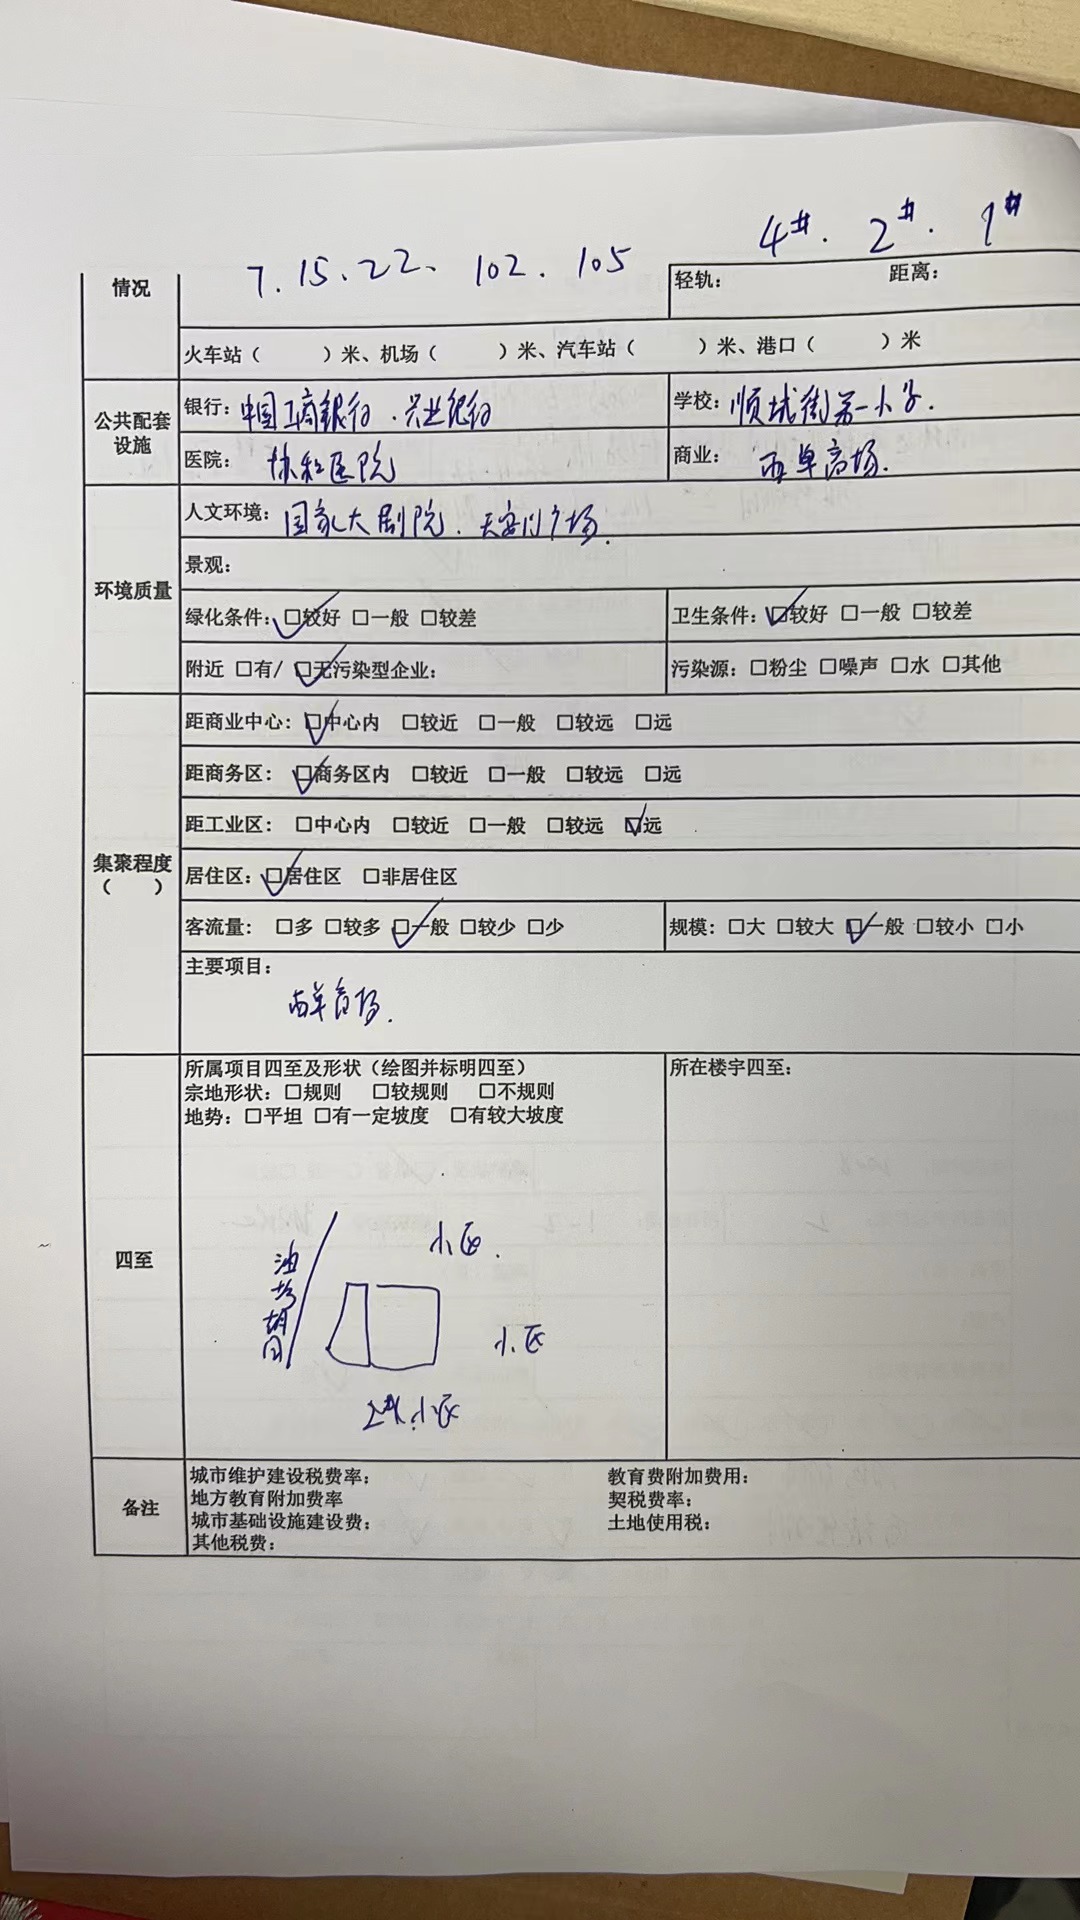 4#. 2#. 1#
7. 15. 22. 102. 105
情况
轻轨： 距离：
火车站（ ）米、机场（ ）米、汽车站（ ）米、港口（ ）米
公共配套设施
银行：中国工商银行、兴业银行
学校：顺城街第一小学.
医院：协和医院
商业：西单商场.
环境质量
人文环境：国家大剧院、天安门广场.
景观：
绿化条件：☑较好 □一般 □较差
卫生条件：☑较好 □一般 □较差
附近 □有/ ☑无污染型企业：
污染源：□粉尘 □噪声 □水 □其他
集聚程度
（ ）
距商业中心：☑中心内 □较近 □一般 □较远 □远
距商务区：☑商务区内 □较近 □一般 □较远 □远
距工业区：□中心内 □较近 □一般 □较远 ☑远
居住区：☑居住区 □非居住区
客流量：□多 □较多 ☑一般 □较少 □少
规模：□大 □较大 ☑一般 □较小 □小
主要项目：
西单商场.
四至
所属项目四至及形状（绘图并标明四至）
宗地形状：□规则 □较规则 □不规则
地势：□平坦 □有一定坡度 □有较大坡度
所在楼宇四至：
小区.
油坊胡同
小区
小区
备注
城市维护建设税费率： 教育费附加费用：
地方教育附加费率 契税费率：
城市基础设施建设费： 土地使用税：
其他税费：